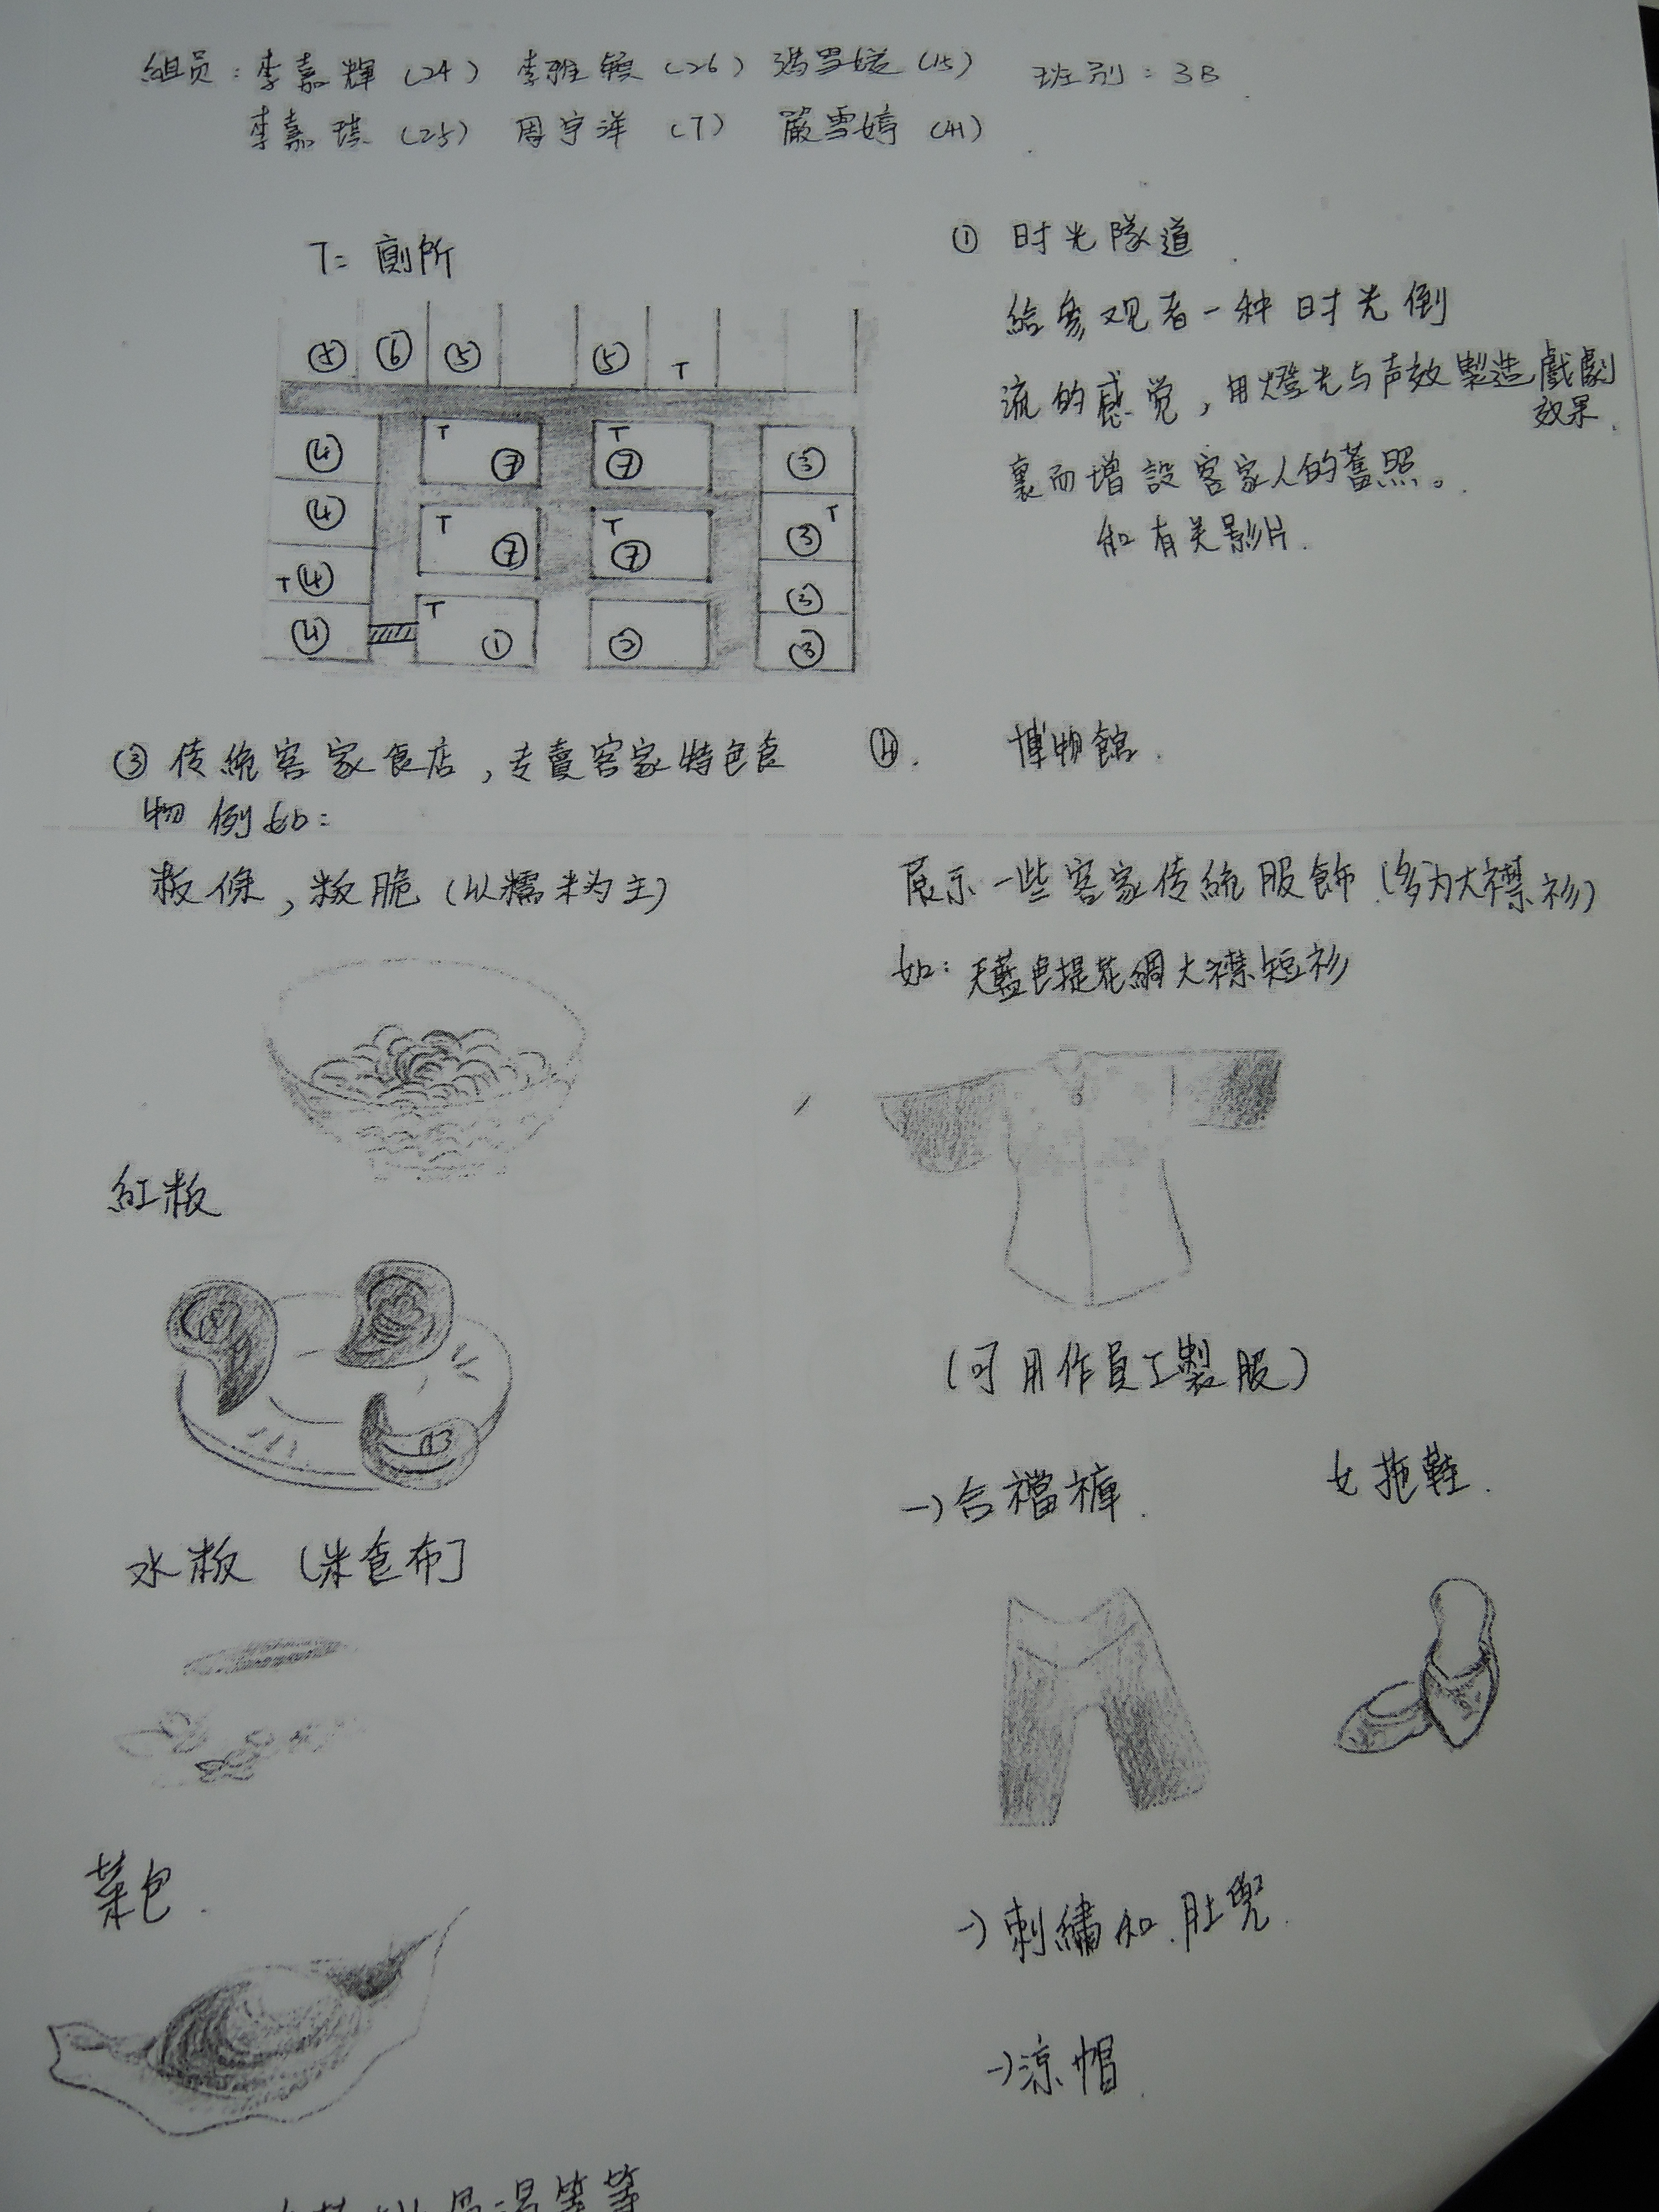 組员：李嘉輝（24） 李雅（26） 馮雪（15） 班别：3B
李嘉琪（25） 周宇洋（7） 嚴雪婷（41）
T= 廁所
⑤ ⑥ ⑤ ⑤ T
④ T ⑦ T ⑦ ③
④ T ⑦ T ⑦ ③ T
T ④ ③
④ T ① ② ③
① 时光隊道
給参观者一种时光倒
流的感觉，用燈光与声效製造戲劇
效果.
裏而增設客家人的舊照。
和有关影片.
③ 传統客家食店，专賣客家特色食
物 例如：
粄條，粄脆（以糯米为主）
紅粄
水粄
菜包.
等等
④. 博物館.
展示一些客家传統服飾.（多为大襟衫）
如：天藍色提花綢大襟短衫
（可用作員工製服）
→合襠褲. 女拖鞋.
→刺繡和肚兜.
→涼帽.